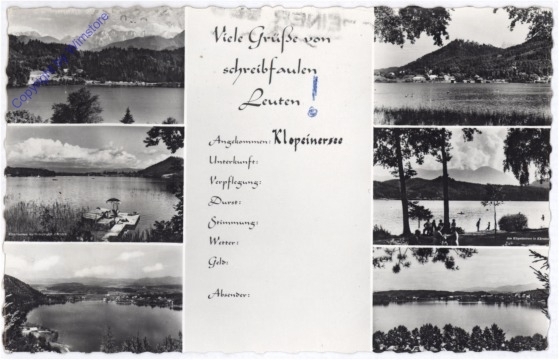 Viele Grüße von
schreibfaulen
Leuten!
Angekommen: Klopeinersee
Unterkunft:
Verpflegung:
Durst:
Stimmung:
Wetter:
Geld:
Absender: